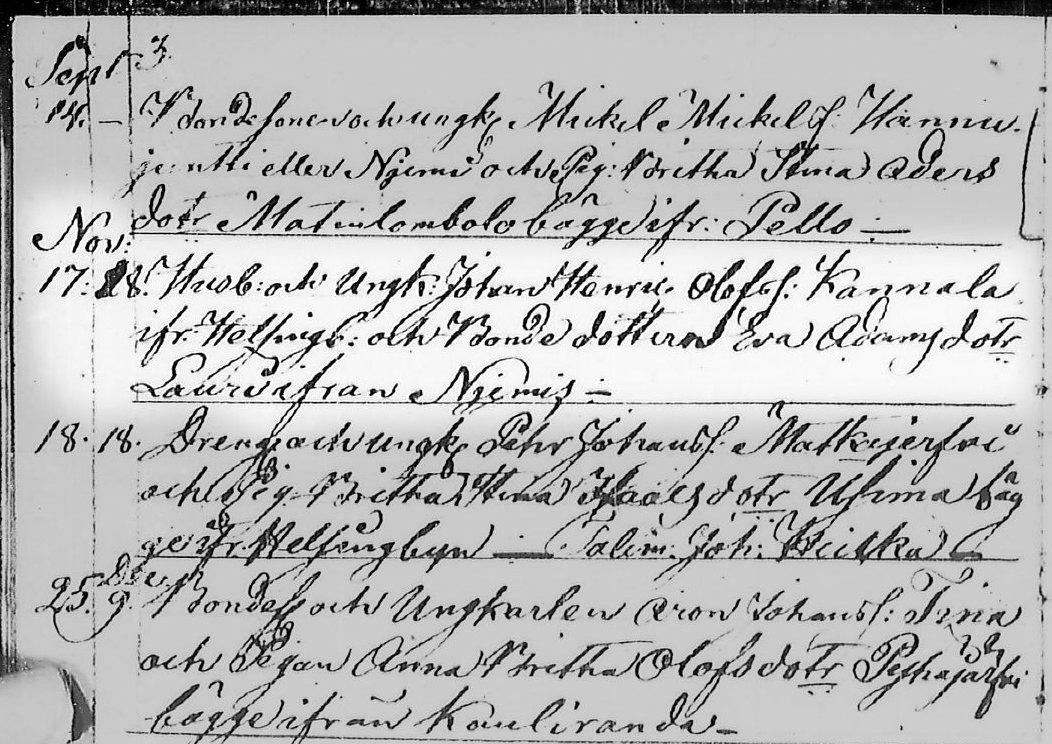 Sept 3.
14. — Bondesonen och ungk. Mickel Mickelss. Hannu-
jentti eller Njemis och Pig. Britha Stina Aders
dotr Matinlombolo bägge ifr: Pello —
Nov:
17: 18. Husb: och Ungk: Johan Henric Olofss: Kannala
ifr. Helsingb: och Bonde dottren Eva Adamsdotr
Lauri ifran Njemis —
18. 18. Dreng och ungk. Pehr Johanss. Matkajerfvi
och Pig. Britha Stina dotr bäg
ge ifr Helsingbyn — Joh:
Dec
25. 9. Bondes. och Ungkarlen Aron Johanss:
och Pigan Anna Britha Olofsdotr
bägge ifrån Kauliranda —